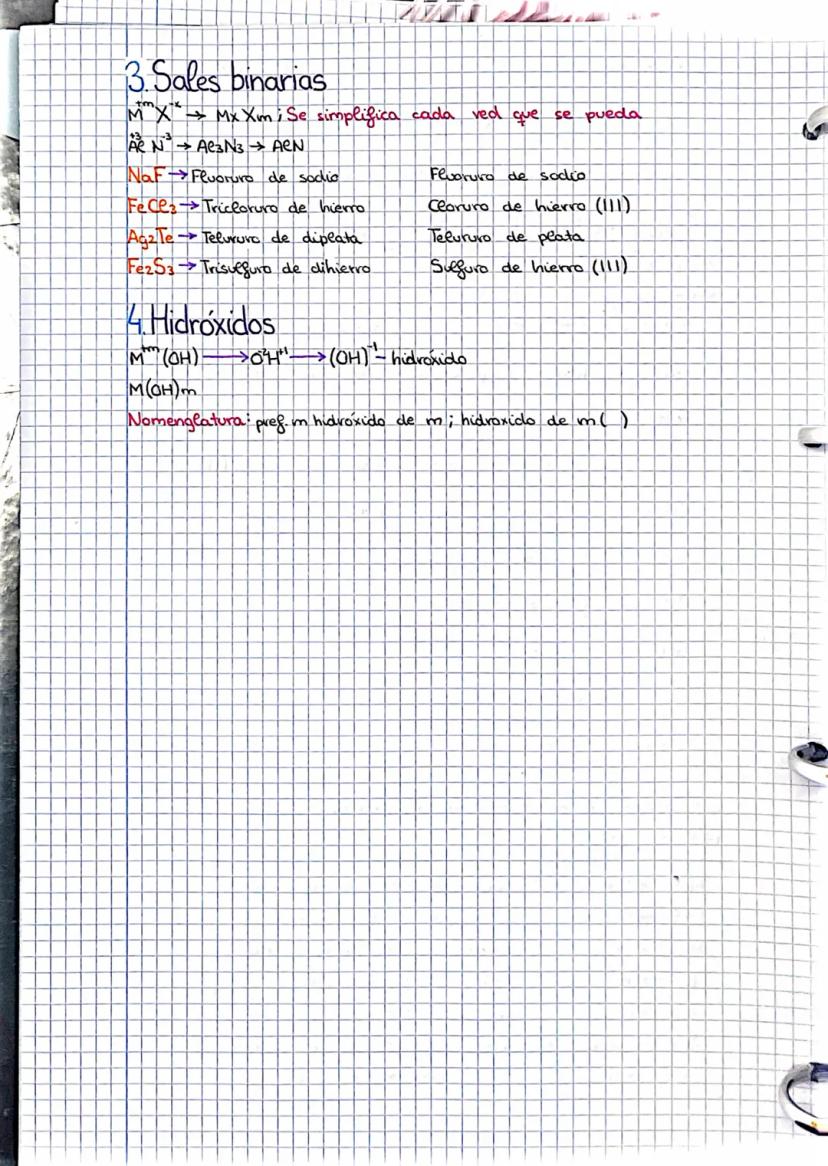 3. Sales binarias
M⁺ᵐ X⁻ˣ → Mx Xm ; Se simplifica cada ved que se pueda
Al⁺³ N⁻³ → Al₃N₃ → AlN
NaF → Fluoruro de sodio Fluoruro de sodio
FeCl₃ → Tricloruro de hierro Cloruro de hierro (III)
Ag₂Te → Telururo de diplata Telururo de plata
Fe₂S₃ → Trisulfuro de dihierro Sulfuro de hierro (III)
4. Hidróxidos
M⁺ᵐ (OH) → O⁻²H⁺¹ → (OH)⁻¹ - hidróxido
M(OH)m
Nomenglatura: pref. m hidróxido de m ; hidroxido de m ( )